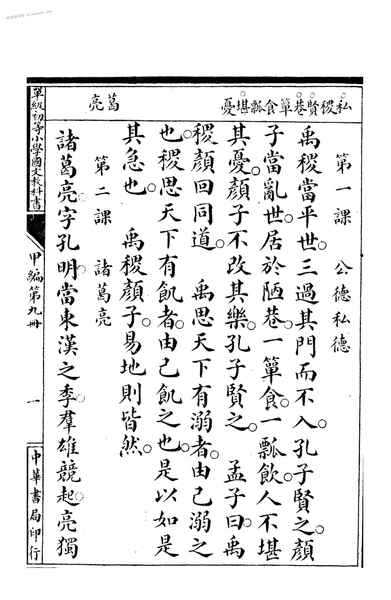 私稷賢巷簞食瓢堪憂
葛亮
第一課　公德私德
禹稷當平世。三過其門而不入。孔子賢之。顏
子當亂世。居於陋巷。一簞食。一瓢飲。人不堪
其憂。顏子不改其樂。孔子賢之。　孟子曰。禹
稷顏回同道。　禹思天下有溺者。由己溺之
也。稷思天下有飢者。由己飢之也。是以如是
其急也。　禹稷顏子。易地則皆然。
第二課　諸葛亮
諸葛亮。字孔明。當東漢之季。羣雄競起。亮獨
單級初等小學國文教科書
甲編第九冊
一
中華書局印行